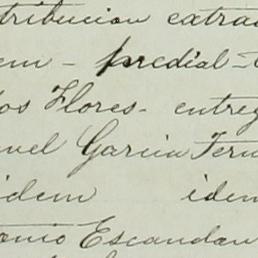 tribucion extrao
em - predial -
os Flores - entreg
uel Garcia Fern
idem idem
onio Escandon